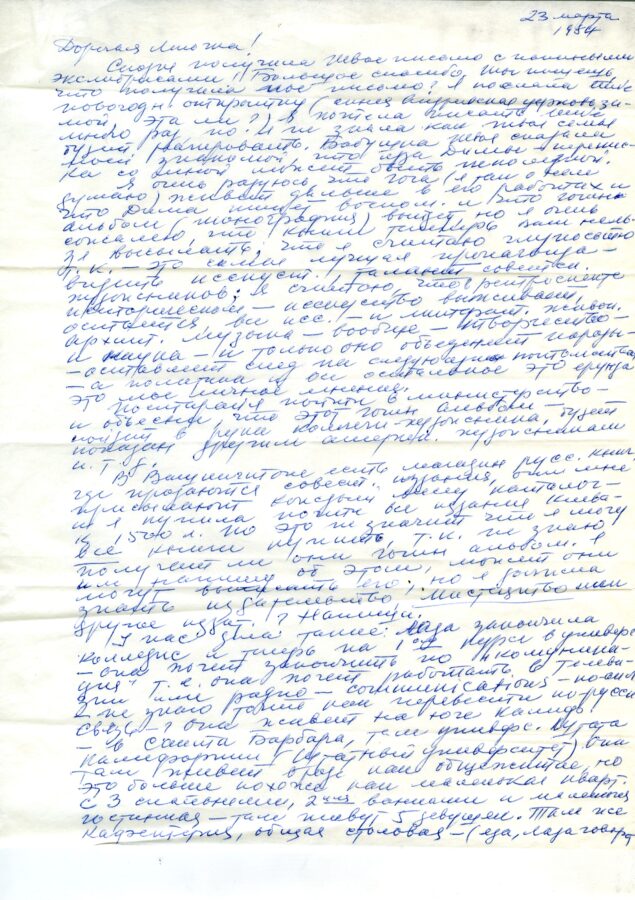 23 марта
1984
Дорогая Люсжа!
Скоро получила твое письмо с папиными
экслибрисами! Большое спасибо, ты пишешь
что получила мое письмо? Я послала
новогодн. открытку (
мой эта ли?) Я хотела писать тебе
много раз но. И не знала как твоя семья
будет реагировать. Бабушка твоя сказала
моей знакомой, что из-за Димы
ка со мной может быть нежелательной.
Я очень радуюсь что Гога (я там о нем
думаю) живет дальше в его работах и
что Дима пишет о нем. и что Гогин
альбом (монография) выйдет но я очень
сожалею, что книги теперь вам нель-
зя высылать, что я считаю глупостью
т.к. – это самая лучшая пропаганда –
видеть искусст. талант. советск.
художников; Я считаю, что в ретроспекте
историческом – искусство выживает,
остаются вы исс. – и литерат. живоп.
архит. музыка – вообще – творчество –
и наука – и только оно объединяет народы
– оставляет след на следующие потомства
– а политика и все остальное это ерунда
это мое личное мнение.
Постарайся пойти в министерство –
и объясни, что этот Гогин альбом –
пойдет в руки коллеги-художника, будет
показан другим америк. художникам
и т.д.
В Вашингтоне есть магазин русс. книг,
где продаются советск. издания, они мне
присылают каждый месяц каталог –
и я купила почти все издания Киева –
к 1500 л. Но это не значит что я могу
все книги купить, т.к. не знаю
получат ли они Гогин альбом. Я
им напишу об этом, может они
могут выписать его, но я должна
знать издательство: Мистецтво или
другое издат.? Напиши.
У нас дела такие: Лаза закончила
колледж и теперь на 1ом курсе в универс.
– она хочет закончить по "коммуника-
ция" т.е. она хочет работать в телеви-
зии или радио – communications – по-англ
– не знаю точно как перевести по-русски
связь –? она живет на юге Калиф.
– в Санта Барбара, там универс. Штата
Калифорнии – (штатный университет) Она
там живет вроде как общежитие, но
это больше похоже как маленькая кварт.
с 3 спальнями, 2мя ваннами и маленькая
гостинная – там живут 5 девушек. Там же
кафетерия, общая столовая – (еда, Лаза говорит